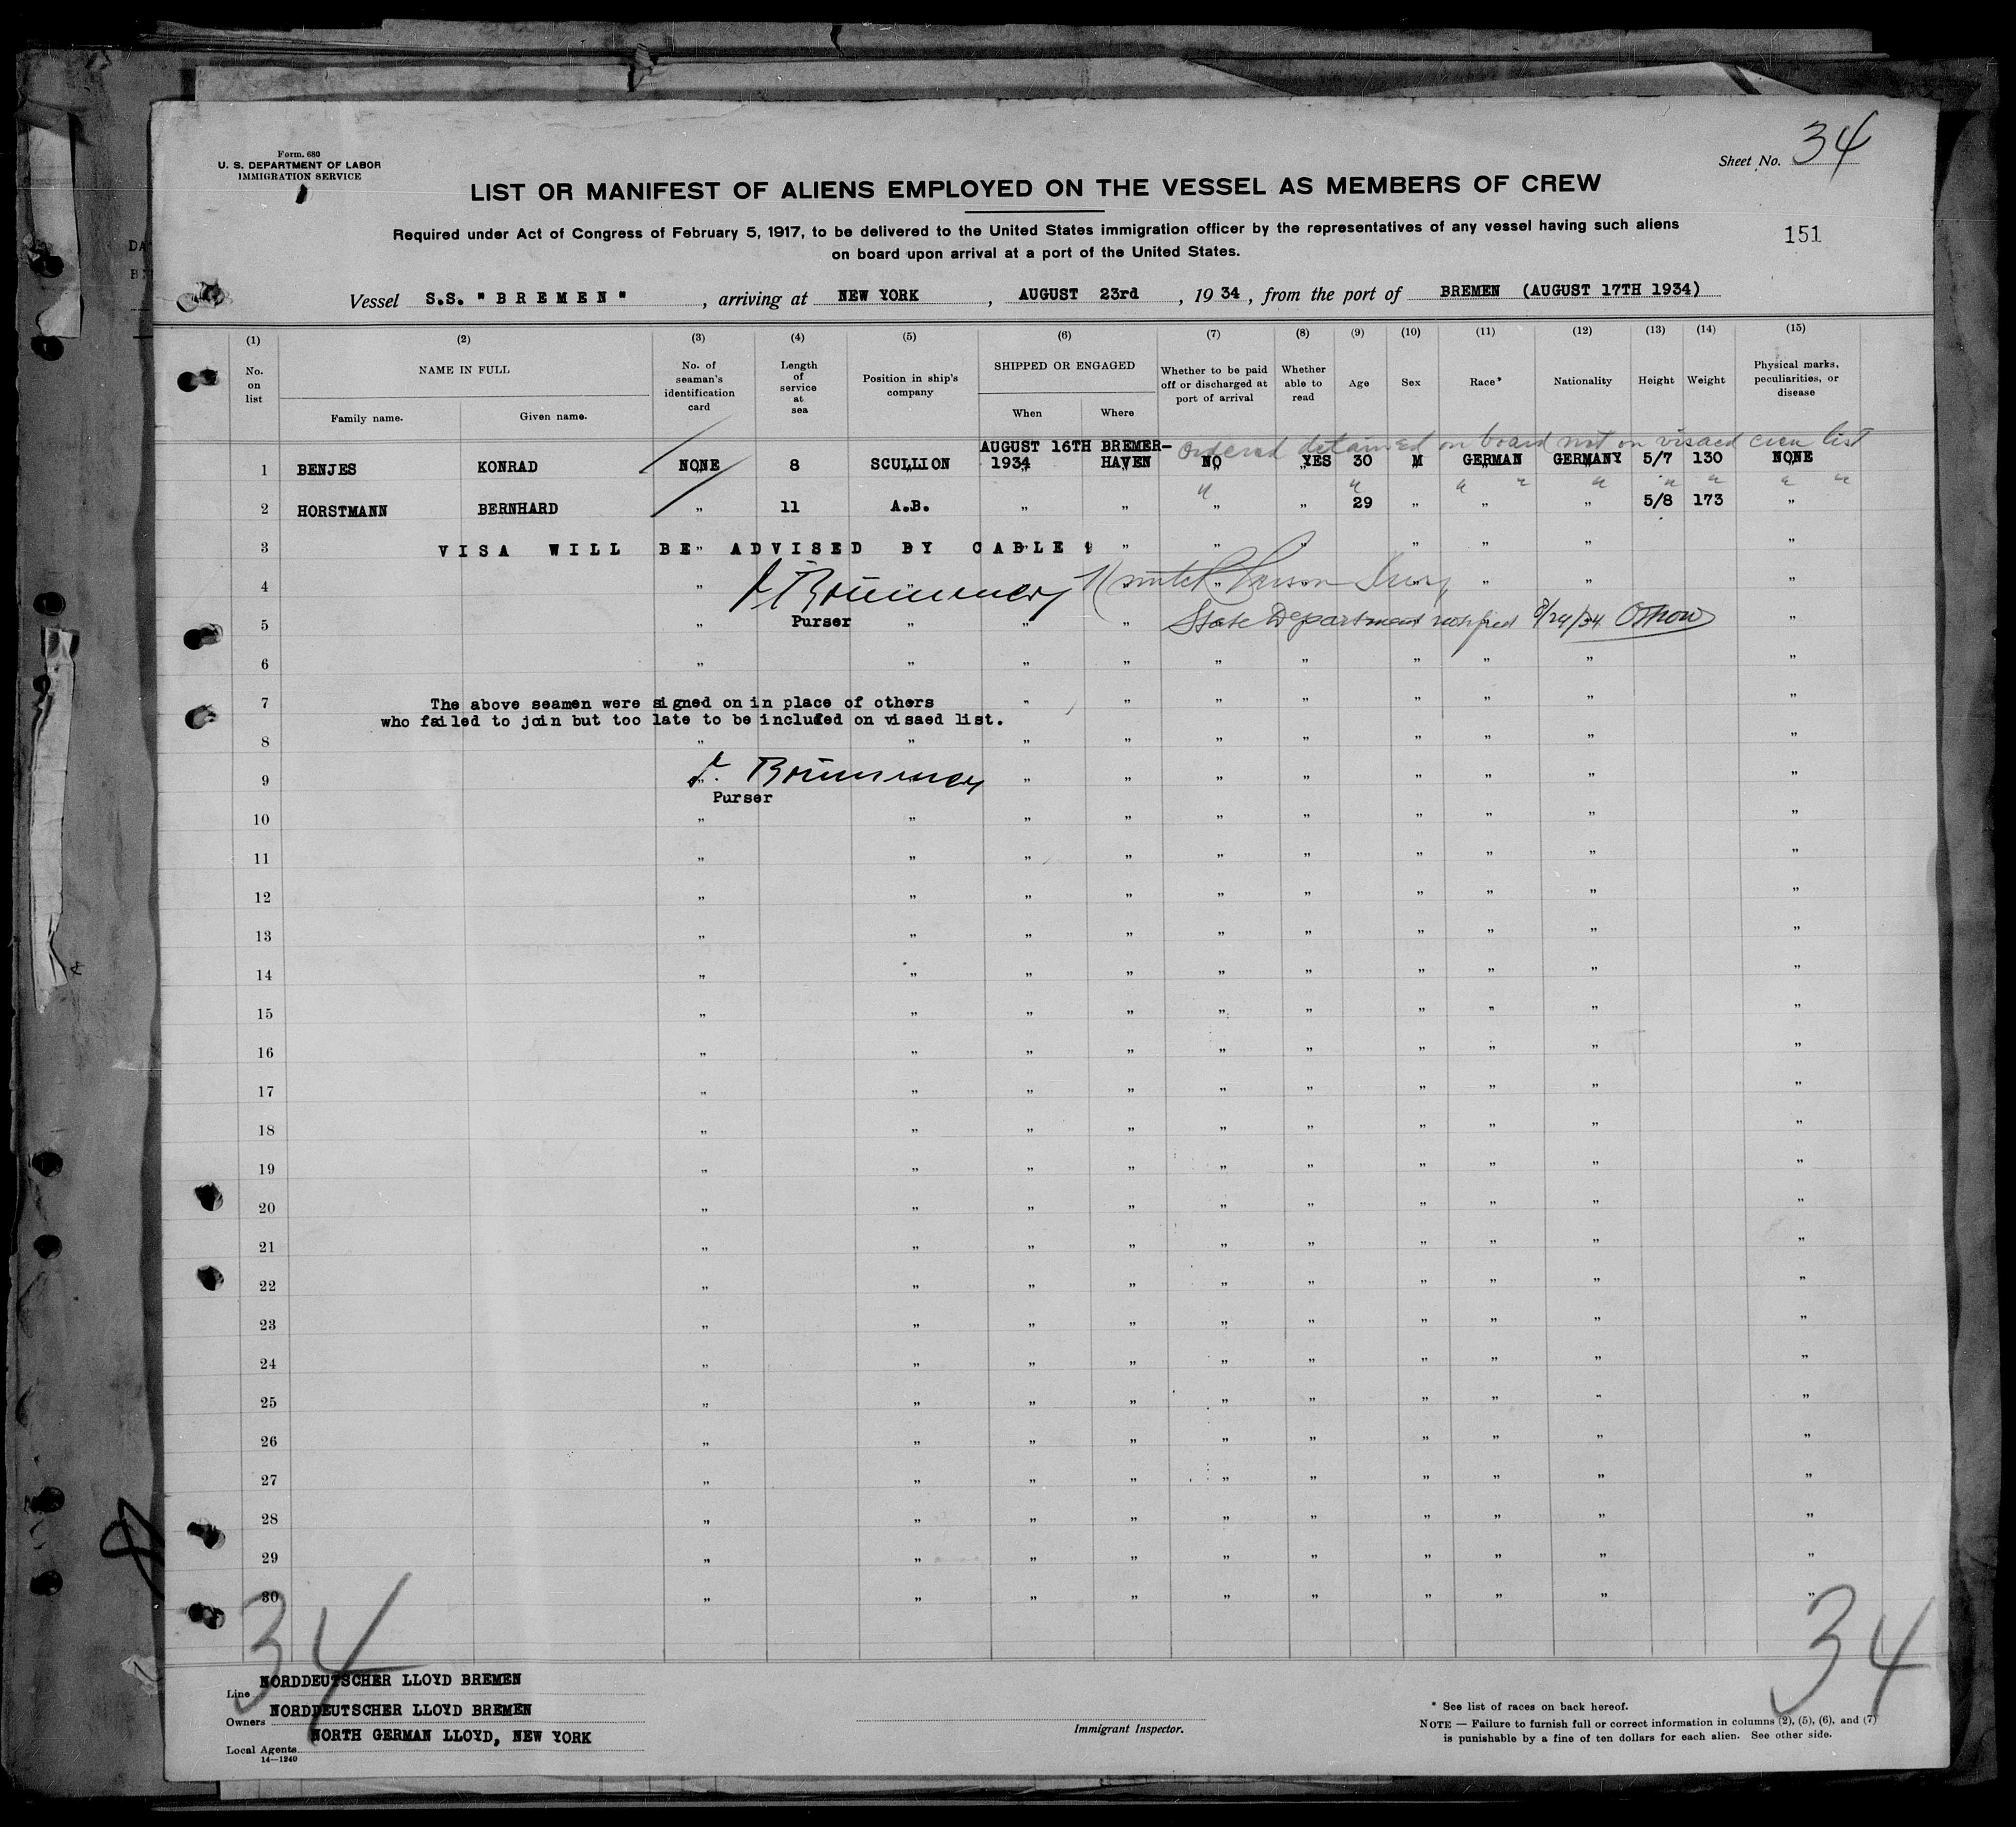 Form. 680
U. S. DEPARTMENT OF LABOR
IMMIGRATION SERVICE
Sheet No. 34
LIST OR MANIFEST OF ALIENS EMPLOYED ON THE VESSEL AS MEMBERS OF CREW
Required under Act of Congress of February 5, 1917, to be delivered to the United States immigration officer by the representatives of any vessel having such aliens
on board upon arrival at a port of the United States.
151
Vessel S.S. "BREMEN", arriving at NEW YORK, AUGUST 23rd, 1934, from the port of BREMEN (AUGUST 17TH 1934)
(1) (2) (3) (4) (5) (6) (7) (8) (9) (10) (11) (12) (13) (14) (15)
No. on list
NAME IN FULL
Family name. Given name.
No. of seaman's identification card
Length of service at sea
Position in ship's company
SHIPPED OR ENGAGED
When Where
Whether to be paid off or discharged at port of arrival
Whether able to read
Age
Sex
Race*
Nationality
Height
Weight
Physical marks, peculiarities, or disease
Ordered detained on board not on visaed crew list
1 BENJES KONRAD NONE 8 SCULLION AUGUST 16TH 1934 BREMER-HAVEN NO YES 30 M GERMAN GERMANY 5/7 130 NONE
2 HORSTMANN BERNHARD " 11 A.B. " " " " 29 " " " 5/8 173 "
3 VISA WILL BE ADVISED BY CABLE " " " " " " "
4 " " " " "
Purser
State Department notified 8/24/34
5 " " " " "
6 " " " " " " " " " "
7 The above seamen were signed on in place of others " " " " " " " "
who failed to join but too late to be included on visaed list.
8 " " " " " " " " " "
9 Brümmer " " " " " " " "
Purser
10 " " " " " " " " " "
11 " " " " " " " " " "
12 " " " " " " " " " "
13 " " " " " " " " " "
14 " " " " " " " " " "
15 " " " " " " " " " "
16 " " " " " " " " " "
17 " " " " " " " " " "
18 " " " " " " " " " "
19 " " " " " " " " " "
20 " " " " " " " " " "
21 " " " " " " " " " "
22 " " " " " " " " " "
23 " " " " " " " " " "
24 " " " " " " " " " "
25 " " " " " " " " " "
26 " " " " " " " " " "
27 " " " " " " " " " "
28 " " " " " " " " " "
29 " " " " " " " " " "
30 " " " " " " " " " "
34
34
Line NORDDEUTSCHER LLOYD BREMEN
Owners NORDDEUTSCHER LLOYD BREMEN
Local Agents NORTH GERMAN LLOYD, NEW YORK
14—1240
Immigrant Inspector.
* See list of races on back hereof.
NOTE — Failure to furnish full or correct information in columns (2), (5), (6), and (7)
is punishable by a fine of ten dollars for each alien. See other side.